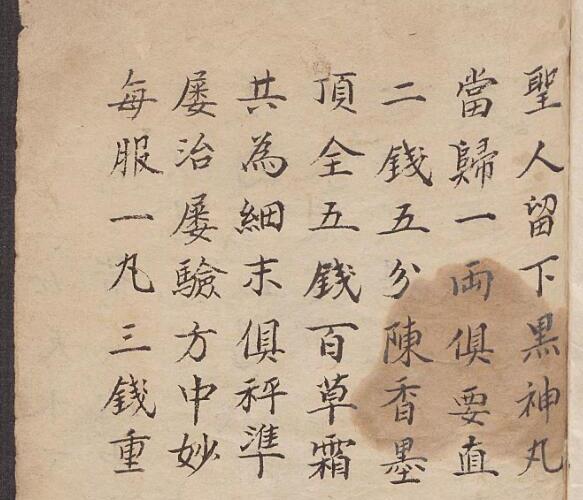 聖人留下黑神丸
當歸一両俱要直
二錢五分陳香墨
頂全五錢百草霜
共為細末俱秤準
屡治屡驗方中妙
每服一丸三錢重